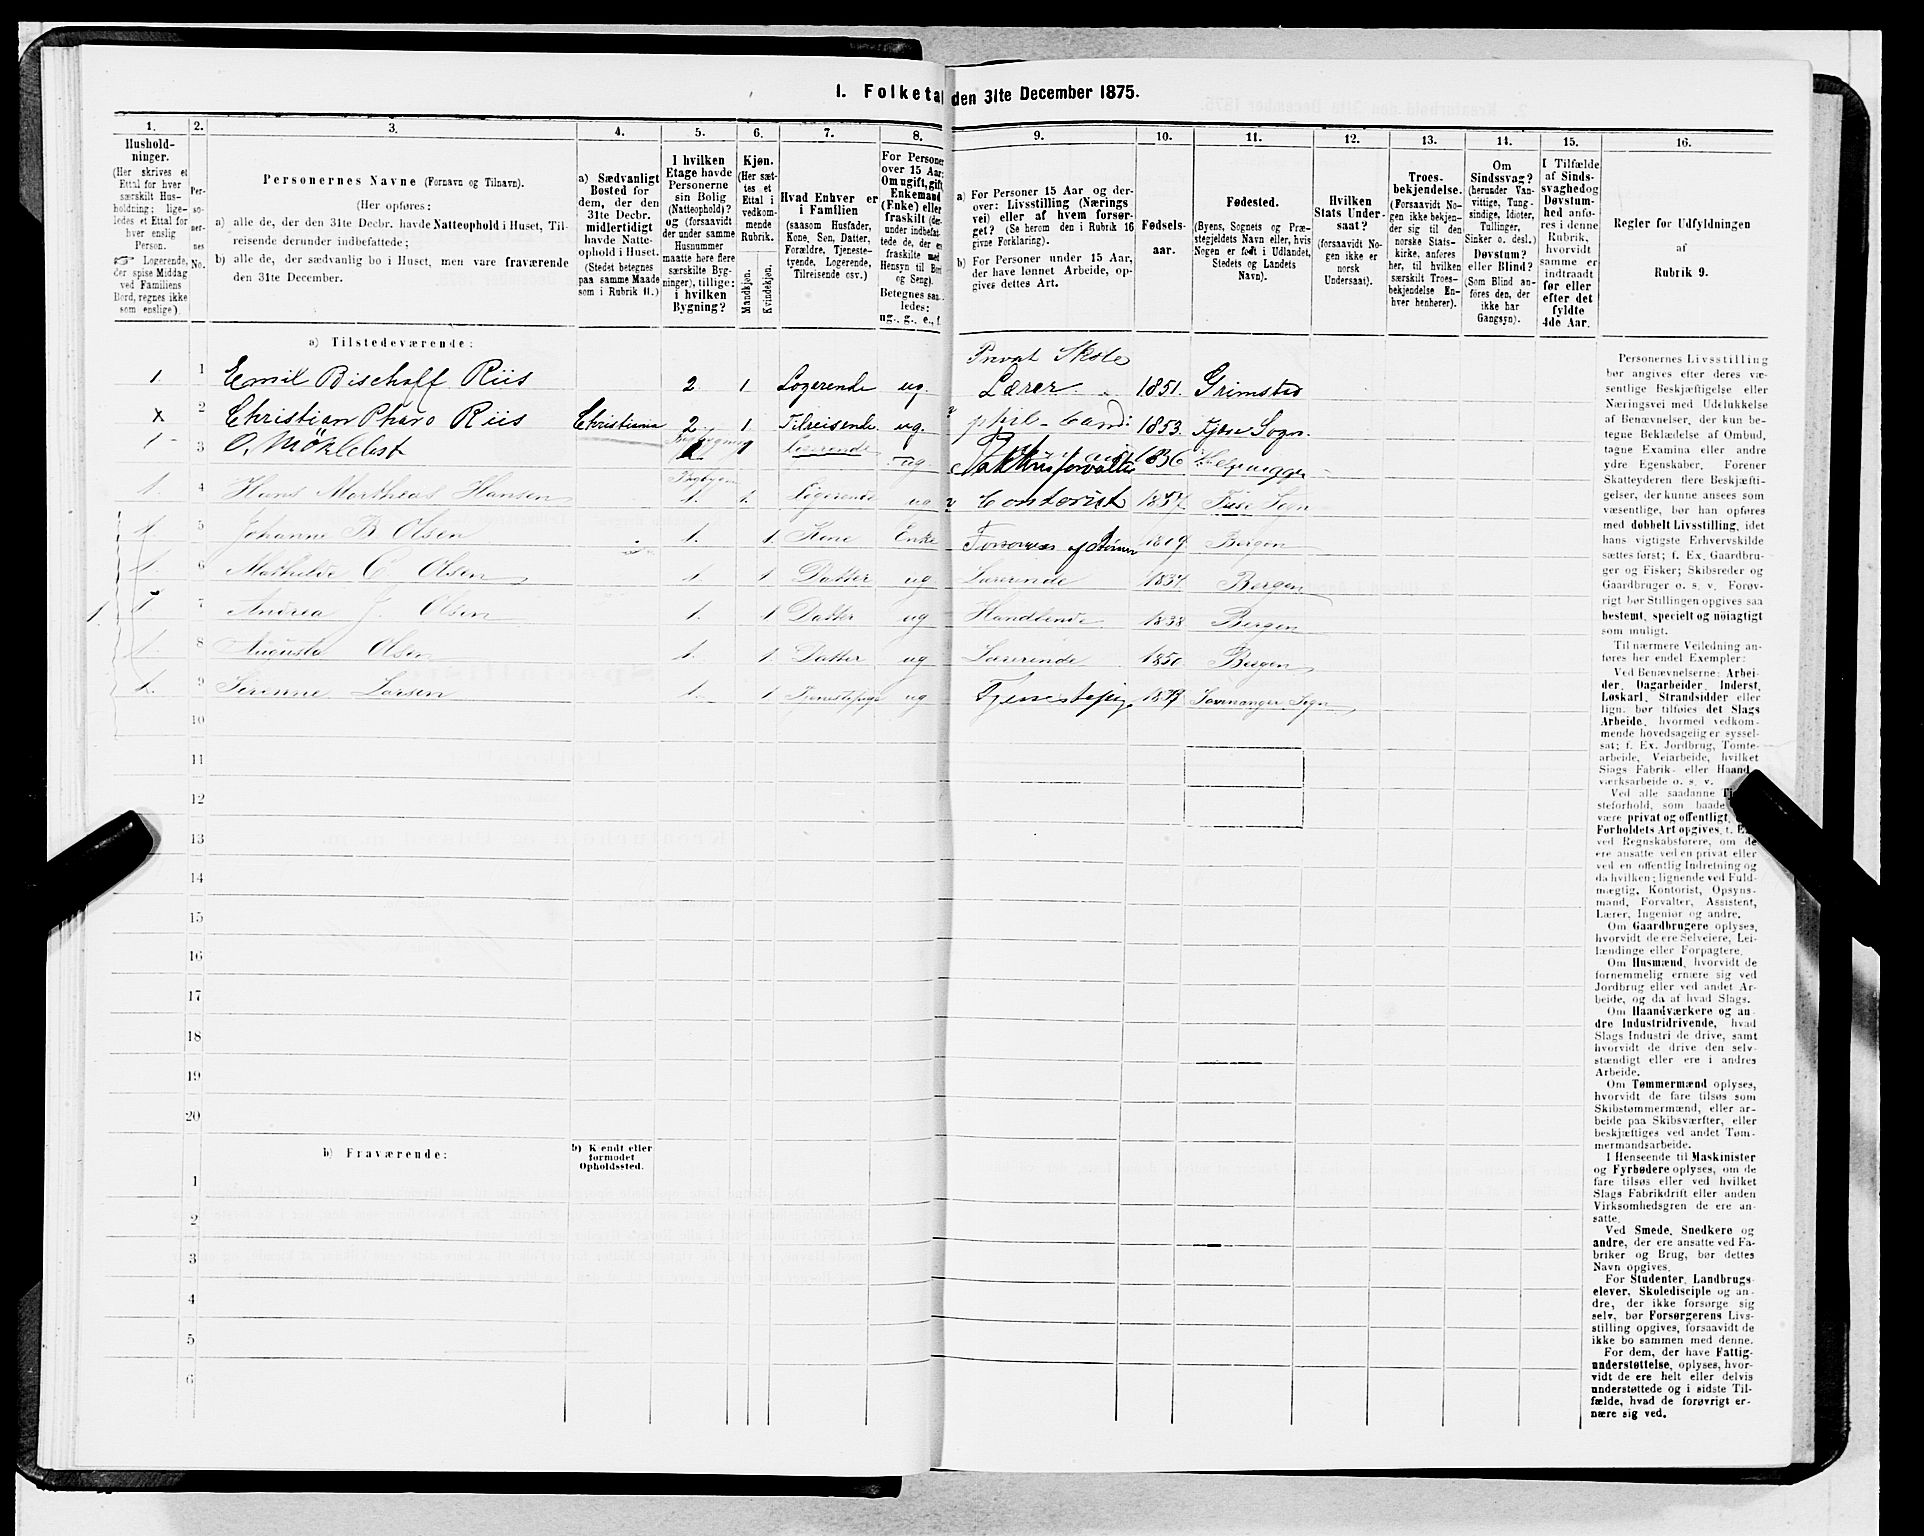 1. Folketal den 31te December 1875.
1. 2. 3. 4. 5. 6. 7. 8. 9. 10. 11. 12. 13. 14. 15. 16.
Hushold-
ninger.
(Her skrives et
Ettal for hver
særskilt Hus-
holdning; lige-
ledes et Ettal for
hver enslig
Person.
☞ Logerende,
der spise Middag
ved Familiens
Bord, regnes ikke
som enslige).
Per-
so-
ner-
nes
No.
Personernes Navne (Fornavn og Tilnavn).
(Her opføres:
a) alle de, der den 31te Decbr. havde Natteophold i Huset, Til-
reisende derunder indbefattede;
b) alle de, der sædvanlig bo i Huset, men vare fraværende
den 31te December.
a) Sædvanligt
Bosted for
dem, der den
31te Decbr.
midlertidigt
havde Natte-
ophold i Huset.
(Stedet betegnes
paa samme Maade
som i Rubrik 11.)
I hvilken
Etage havde
Personerne
sin Bolig
(Natteophold)?
og (forsaavidt
der under samme
Husnummer
maatte høre flere
særskilte Byg-
ninger), tillige:
i hvilken
Bygning?
Kjøn.
(Her sæt-
tes et
Ettal i
vedkom-
mende
Rubrik.
Mandkjøn.
Kvindekjøn.
Hvad Enhver er
i Familien
(saasom Husfader,
Kone, Søn, Datter,
Forældre, Tjeneste-
tyende, Logerende,
Tilreisende osv.)
For Personer
over 15 Aar:
Om ugift, gift,
Enkemand
(Enke) eller
fraskilt (der-
under indbefat-
tede de, der ere
fraskilte med
Hensyn til Bord
og Seng).
Betegnes saa-
ledes:
ug., g., e., f.
a) For Personer 15 Aar og der-
over: Livsstilling (Nærings
vei) eller af hvem forsør-
get? (Se herom den i Rubrik 16
givne Forklaring).
b) For Personer under 15 Aar,
der have lønnet Arbeide, op-
gives dettes Art.
Fødsels-
aar.
Fødested.
(Byens, Sognets og Præ-
stegjeldets Navn eller, hvis
Nogen er født i Udlandet,
Stedets og Landets
Navn).
Hvilken
Stats Under-
saat?
(forsaavidt No-
gen ikke er
norsk
Undersaat).
Troes-
bekjendelse.
(Forsaavidt No-
gen ikke bekjen-
der sig til den
norske Stats-
kirke, anføres
her, til hvilken
særskilt Troes-
bekjendelse En-
hver henhører).
Om
Sindssvag?
(herunder Van-
vittige, Tung-
sindige, Idioter,
Tullinger,
Sinker o. desl.)
Døvstum?
eller Blind?
(Som Blind an-
føres den, der
ikke har
Gangsyn).
I Tilfælde
af Sinds-
svaghed og
Døvstum-
hed anfø-
res i denne
Rubrik,
hvorvidt
samme er
indtraadt
før eller
efter det
fyldte
4de Aar.
Regler for Udfyldningen
af
Rubrik 9.
a) Tilstedeværende:
Privat Skole
1. 1 Emil Bischoff Riis 2. 1. Logerende ug. Lærer. 1851. Grimstad
x 2 Christian Pharo Riis Christiania 2. 1 Tilreisende ug. phil-Cand: 1853. Sogn.
1 3 O. Møklebst 1 Logerende ug 1836
1. 4 Hans Mathias Hansen 1. 1. Logerende ug Contorist Sogn
1. 5 Johanne B Olsen 1. 1. Kone Enke Forsørges af Børnen 1809 Bergen
1. 6 Mathilde C Olsen 1. 1 Datter ug Lærerinde 1834 Bergen
1 7 Andrea J. Olsen 1. 1 Datter ug Handlende. 1838 Bergen
1. 8 Augusta Olsen 1. 1. Datter ug Lærerinde 1850 Bergen
1. 9 Serenne Larsen 1. 1 Tjenestepige ug Tjenestepige Sogn
10
11
12
13
14
15
16
17
18
19
20
b) Fraværende:
b) Kendt eller
formodet
Opholdssted.
1
2
3
4
5
6
Personernes Livsstilling
bør angives efter deres væ-
sentlige Beskjæftigelse eller
Næringsvei med Udelukkelse
af Benævnelser, der kun be-
tegne Beklædelse af Ombud,
tagne Examina eller andre
ydre Egenskaber. Forener
Skatteyderen flere Beskjæfti-
gelser, der kunne ansees som
væsentlige, bør han opføres
med dobbelt Livsstilling, idet
hans vigtigste Erhvervskilde
sættes først; f. Ex. Gaardbru-
ger og Fisker; Skibsreder og
Gaardbruger o. s. v. Forøv-
rigt bør Stillingen opgives saa
bestemt, specielt og nøiagtigt
som muligt.
Til nærmere Veiledning an-
føres her endel Exempler:
Ved Benævnelserne: Arbei-
der, Dagarbeider, Inderst,
Løskarl, Strandsidder eller
lign. bør tilføies det Slags
Arbeide, hvormed vedkom-
mende hovedsagelig er syssel-
sat; f. Ex. Jordbrug, Tomte-
arbeide, Veiarbeide, hvilket
Slags Fabrik- eller Haand-
værksarbeide o. s. v.
Ved alle saadanne
steforhold, som baade
være privat og offentligt,
Forholdets Art opgives, f.
ved Regnskabsførere, om de
ere ansatte ved en privat eller
ved en offentlig Indretning og
da hvilken; lignende ved Fuld-
mægtig, Kontorist, Opsyns-
mand, Forvalter, Assistent,
Lærer, Ingeniør og andre.
Om Gaardbrugere oplyses,
hvorvidt de ere Selveiere, Lei-
lændinge eller Forpagtere.
Om Husmænd, hvorvidt de
fornemmelig ernære sig ved
Jordbrug eller ved andet Ar-
beide, og da af hvad Slags.
Om Haandværkere og an-
dre Industridrivende, hvad
Slags Industri de drive, samt
hvorvidt de drive den selv-
stændigt eller ere i andres
Arbeide.
Om Tømmermænd oplyses,
hvorvidt de fare tilsøs som
Skibstømmermænd, eller ar-
beide paa Skibsværfter, eller
beskjæftiges ved andet Tøm-
mermandsarbeide.
I Henseende til Maskinister
og Fyrbødere oplyses, om de
fare tilsøs eller ved hvilket
Slags Fabrikdrift eller anden
Virksomhedsgren de ere an-
satte.
Ved Smede, Snedkere og
andre, der ere ansatte ved Fa-
briker og Brug, bør dettes
Navn opgives.
For Studenter, Landbrugs-
elever, Skoledisciple og an-
dre, der ikke forsørge sig
selv, bør Forsørgerens Livs-
stilling opgives, forsaavidt de
ikke bo sammen med denne.
For dem, der have Fattig-
understøttelse, oplyses, hvor-
vidt de ere helt eller delvis
understøttede og i sidste Til-
fælde, hvad de forøvrigt er-
nære sig ved.